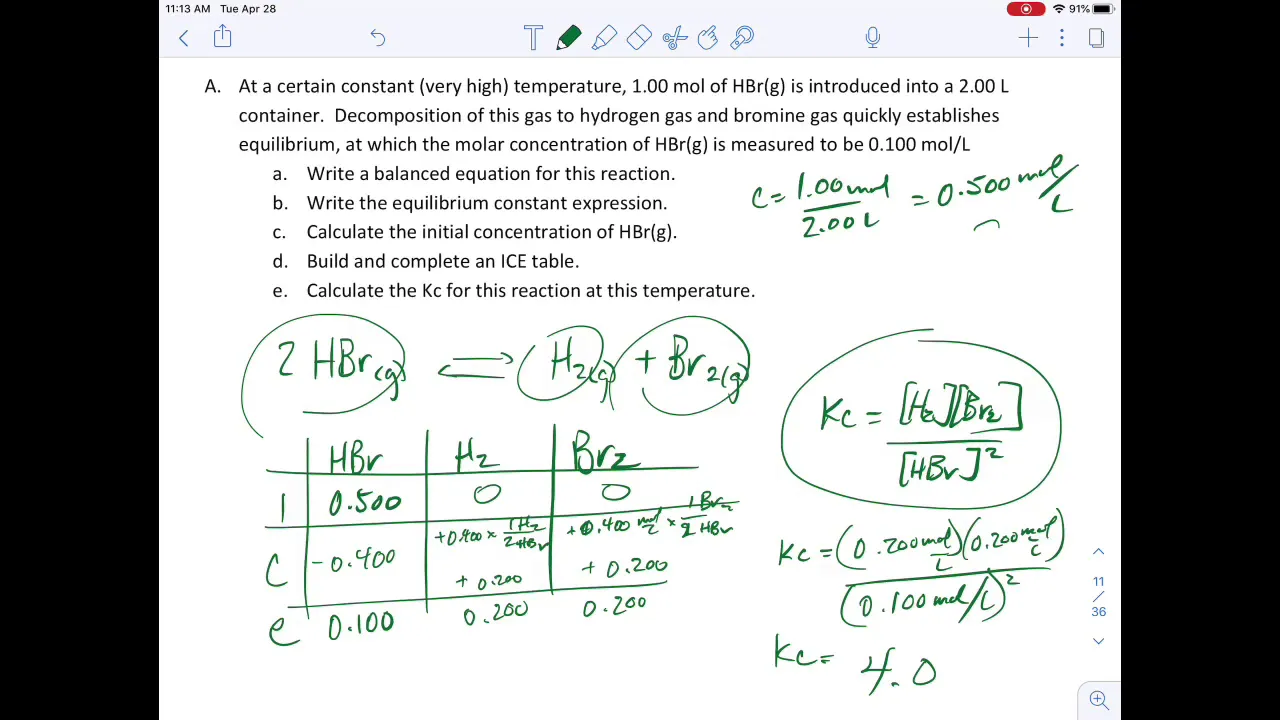 11:13 AM Tue Apr 28
91%
T
A. At a certain constant (very high) temperature, 1.00 mol of HBr(g) is introduced into a 2.00 L
container. Decomposition of this gas to hydrogen gas and bromine gas quickly establishes
equilibrium, at which the molar concentration of HBr(g) is measured to be 0.100 mol/L
a. Write a balanced equation for this reaction.
b. Write the equilibrium constant expression.
c. Calculate the initial concentration of HBr(g).
d. Build and complete an ICE table.
e. Calculate the Kc for this reaction at this temperature.
C = 1.00 mol / 2.00 L = 0.500 mol/L
2 HBr(g) ⇌ H2(g) + Br2(g)
Kc = [H2][Br2] / [HBr]²
HBr H2 Br2
I 0.500 0 0
C -0.400 +0.400 × 1H2/2HBr +0.400 mol/L × 1Br2/2HBr
+0.200 +0.200
e 0.100 0.200 0.200
Kc = (0.200 mol/L)(0.200 mol/L) / (0.100 mol/L)²
Kc = 4.0
11
/
36